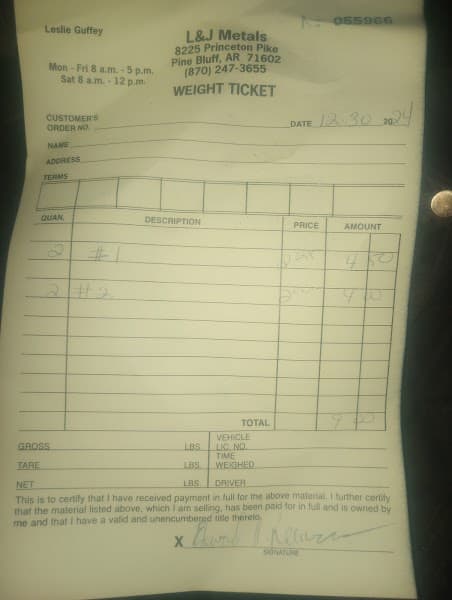 Leslie Guffey
No. 055966
L&J Metals
8225 Princeton Pike
Pine Bluff, AR 71602
(870) 247-3655
Mon - Fri 8 a.m. - 5 p.m.
Sat 8 a.m. - 12 p.m.
WEIGHT TICKET
CUSTOMER'S
ORDER NO.
DATE 12-30 2024
NAME
ADDRESS
TERMS
QUAN. DESCRIPTION PRICE AMOUNT
2 #1 4 50
2 #2 4
TOTAL 9
GROSS LBS.
TARE LBS.
NET LBS.
VEHICLE
LIC. NO.
TIME
WEIGHED
DRIVER
This is to certify that I have received payment in full for the above material. I further certify
that the material listed above, which I am selling, has been paid for in full and is owned by
me and that I have a valid and unencumbered title thereto.
X
SIGNATURE